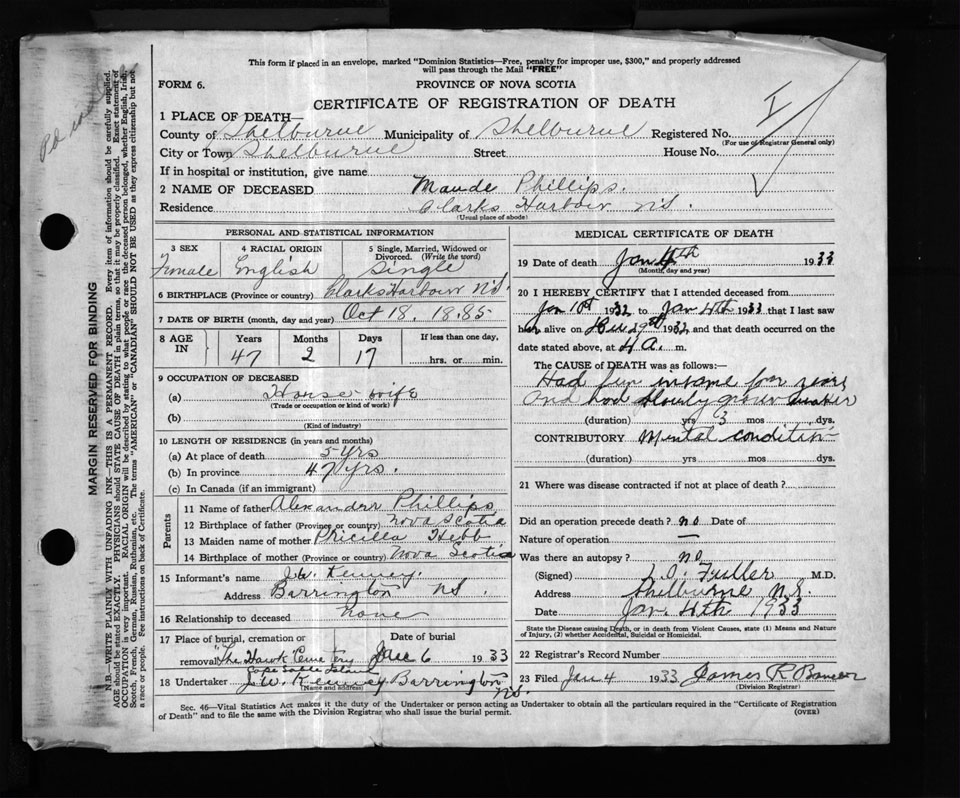 This form if placed in an envelope, marked "Dominion Statistics—Free, penalty for improper use, $300," and properly addressed
will pass through the Mail "FREE"
FORM 6.
PROVINCE OF NOVA SCOTIA
CERTIFICATE OF REGISTRATION OF DEATH
1 PLACE OF DEATH—
County of Shelburne Municipality of Shelburne Registered No.
(For use of Registrar General only)
City or Town Shelburne Street House No.
If in hospital or institution, give name
2 NAME OF DECEASED Maude Phillips.
Residence Clarks Harbour NS.
(Usual place of abode)
PERSONAL AND STATISTICAL INFORMATION
3 SEX 4 RACIAL ORIGIN 5 Single, Married, Widowed or
Divorced. (Write the word)
Female English Single
6 BIRTHPLACE (Province or country) Clarks Harbour NS.
7 DATE OF BIRTH (month, day and year) Oct 18. 1885
8 AGE IN Years Months Days If less than one day,
47 2 17 hrs. or min.
9 OCCUPATION OF DECEASED
(a) House wife
(Trade or occupation or kind of work)
(b)
(Kind of industry)
10 LENGTH OF RESIDENCE (in years and months)
(a) At place of death 5 yrs
(b) In province 47 yrs.
(c) In Canada (if an immigrant)
Parents
11 Name of father Alexander Phillips
12 Birthplace of father (Province or country) Nova Scotia
13 Maiden name of mother Pricilla Hebb
14 Birthplace of mother (Province or country) Nova Scotia
15 Informant's name J.W. Kenney.
Address Barrington NS.
16 Relationship to deceased None
17 Place of burial, cremation or Date of burial
removal The Hawk Cemetery Jan 6 1933
Cape Sable Island
18 Undertaker J.W. Kenney Barrington
(Name and address) NS.
MEDICAL CERTIFICATE OF DEATH
19 Date of death Jan 4th 1933
(Month, day and year)
20 I HEREBY CERTIFY that I attended deceased from
Jan 10th 1932 to Jan 4th 1933 that I last saw
her alive on 29th 1932 and that death occurred on the
date stated above, at 4 A. m.
The CAUSE of DEATH was as follows:—
Had been insane for years
and had slowly grown weaker
(duration) yrs 3 mos dys.
CONTRIBUTORY Mental condition
(duration) yrs mos dys.
21 Where was disease contracted if not at place of death?
Did an operation precede death? no Date of
Nature of operation —
Was there an autopsy? no
(Signed) Fuller M.D.
Address Shelburne N.S.
Date Jan. 4th 1933
State the Disease causing Death, or in death from Violent Causes, state (1) Means and
Nature of Injury, (2) whether Accidental, Suicidal or Homicidal.
22 Registrar's Record Number
23 Filed Jan 4 1933 James R
(Division Registrar)
Sec. 46—Vital Statistics Act makes it the duty of the Undertaker or person acting as Undertaker to obtain all the particulars required in the "Certificate of Registration
of Death" and to file the same with the Division Registrar who shall issue the burial permit.
(OVER)
MARGIN RESERVED FOR BINDING
N.B.—WRITE PLAINLY WITH UNFADING INK—THIS IS A PERMANENT RECORD. Every item of information should be carefully supplied.
AGE should be stated EXACTLY. PHYSICIANS should STATE CAUSE OF DEATH in plain terms, so that it may be properly classified. Exact statement of
OCCUPATION is very important. RACIAL ORIGIN will be described by stating to what people or race the deceased person belonged, whether English, Irish,
Scotch, French, German, Russian, Ruthenian, etc. The terms "AMERICAN" or "CANADIAN" SHOULD NOT BE USED as they express citizenship but not
a race or people. Fee instructions on back of Certificate.